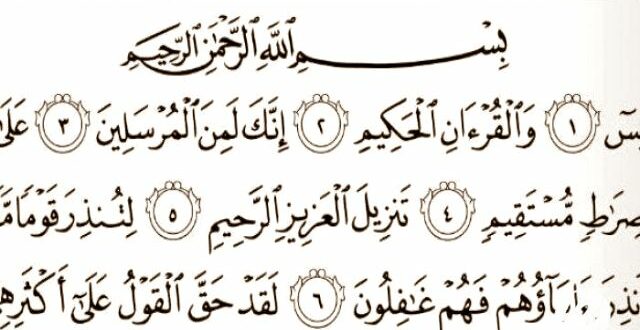 بِسْمِ ٱللَّهِ ٱلرَّحْمَٰنِ ٱلرَّحِيمِ
يسٓ ١ وَٱلْقُرْءَانِ ٱلْحَكِيمِ ٢ إِنَّكَ لَمِنَ ٱلْمُرْسَلِينَ ٣ عَلَىٰ
صِرَٰطٍ مُّسْتَقِيمٍ ٤ تَنزِيلَ ٱلْعَزِيزِ ٱلرَّحِيمِ ٥ لِتُنذِرَ قَوْمًا مَّا
ءَابَآؤُهُمْ فَهُمْ غَٰفِلُونَ ٦ لَقَدْ حَقَّ ٱلْقَوْلُ عَلَىٰٓ أَكْثَرِهِ